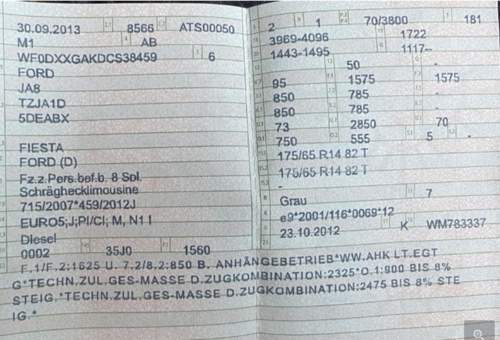 30.09.2013 8566 ATS00050
M1 AB
WF0DXXGAKDCS38459 6
FORD
JA8
TZJA1D
5DEABX
FIESTA
FORD (D)
Fz.z.Pers.bef.b. 8 Spl.
Schräghecklimousine
715/2007*459/2012J
EURO5;J;PI/CI; M, N1 I
Diesel
0002 35J0 1560
2 1 70/3800 181
3969-4096 1722
1443-1495 1117--
50 -
95 1575 1575
850 785 -
850 785 -
73 2850 70
750 555 5 -
175/65 R14 82 T
175/65 R14 82 T
-
Grau 7
e9*2001/116*0069*12
23.10.2012 K WM783337
F.1/F.2:1625 U. 7.2/8.2:850 B. ANHÄNGEBETRIEB*WW.AHK LT.EGT
G*TECHN.ZUL.GES-MASSE D.ZUGKOMBINATION:2325*O.1:900 BIS 8%
STEIG.*TECHN.ZUL.GES-MASSE D.ZUGKOMBINATION:2475 BIS 8% STE
IG.*